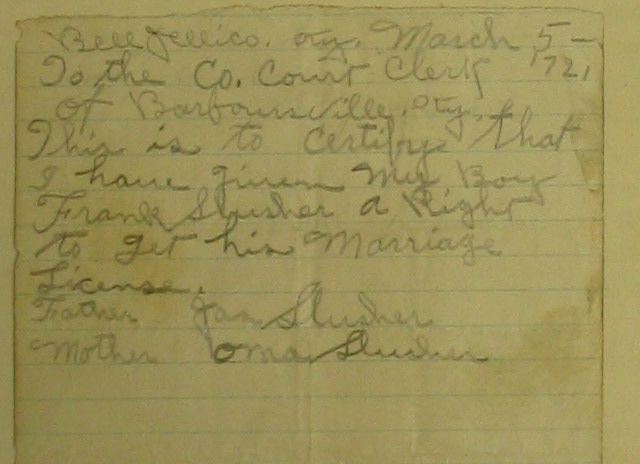 Bell Jellico. Ky. March 5-
To the Co. Court Clerk '21
of Barboursville. Ky.
This is to certify that
I have given My Boy
Frank Slusher a Right
to get his Marriage
License.
Father Jas Slusher
Mother Oma Slusher